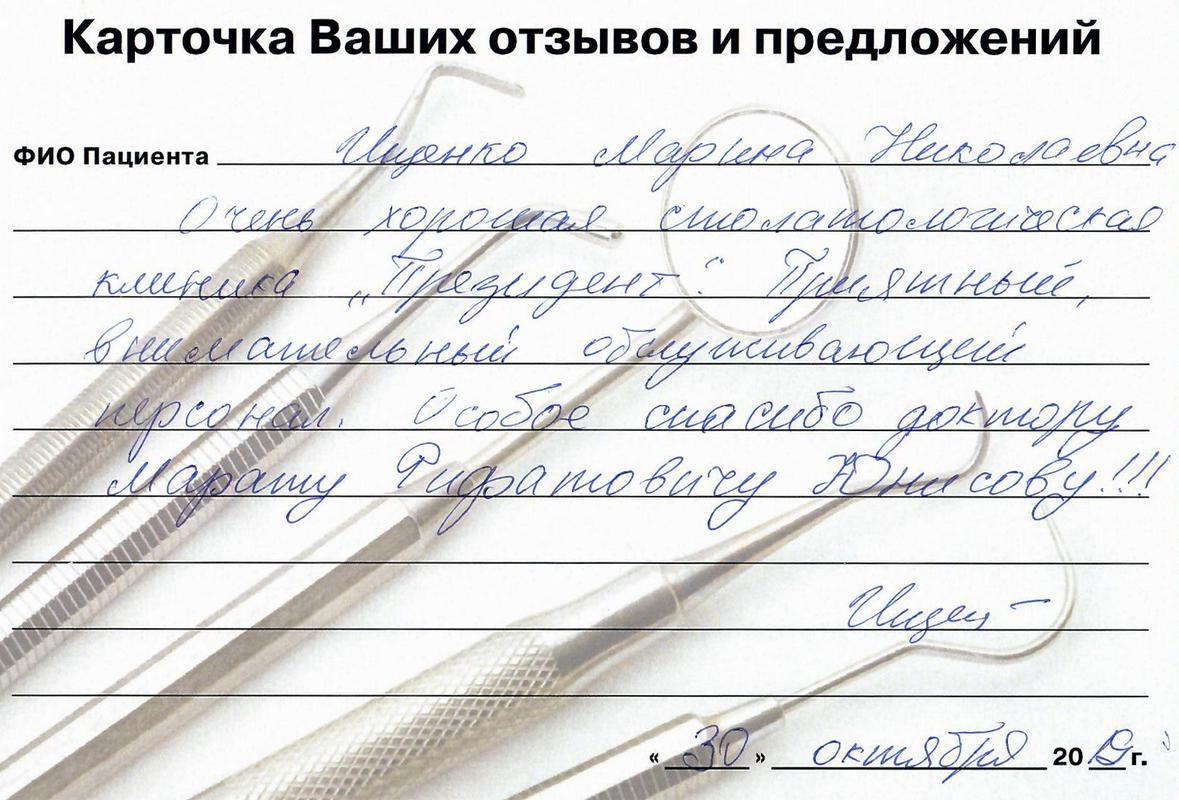 Карточка Ваших отзывов и предложений
ФИО Пациента Ищенко Марина Николаевна
Очень хорошая стоматологическая
клиника „Президент“. Приятный,
внимательный обслуживающий
персонал. Особое спасибо доктору
Марату Рифатовичу Юнисову!!!
Ищен
« 30 » октября 20 г.